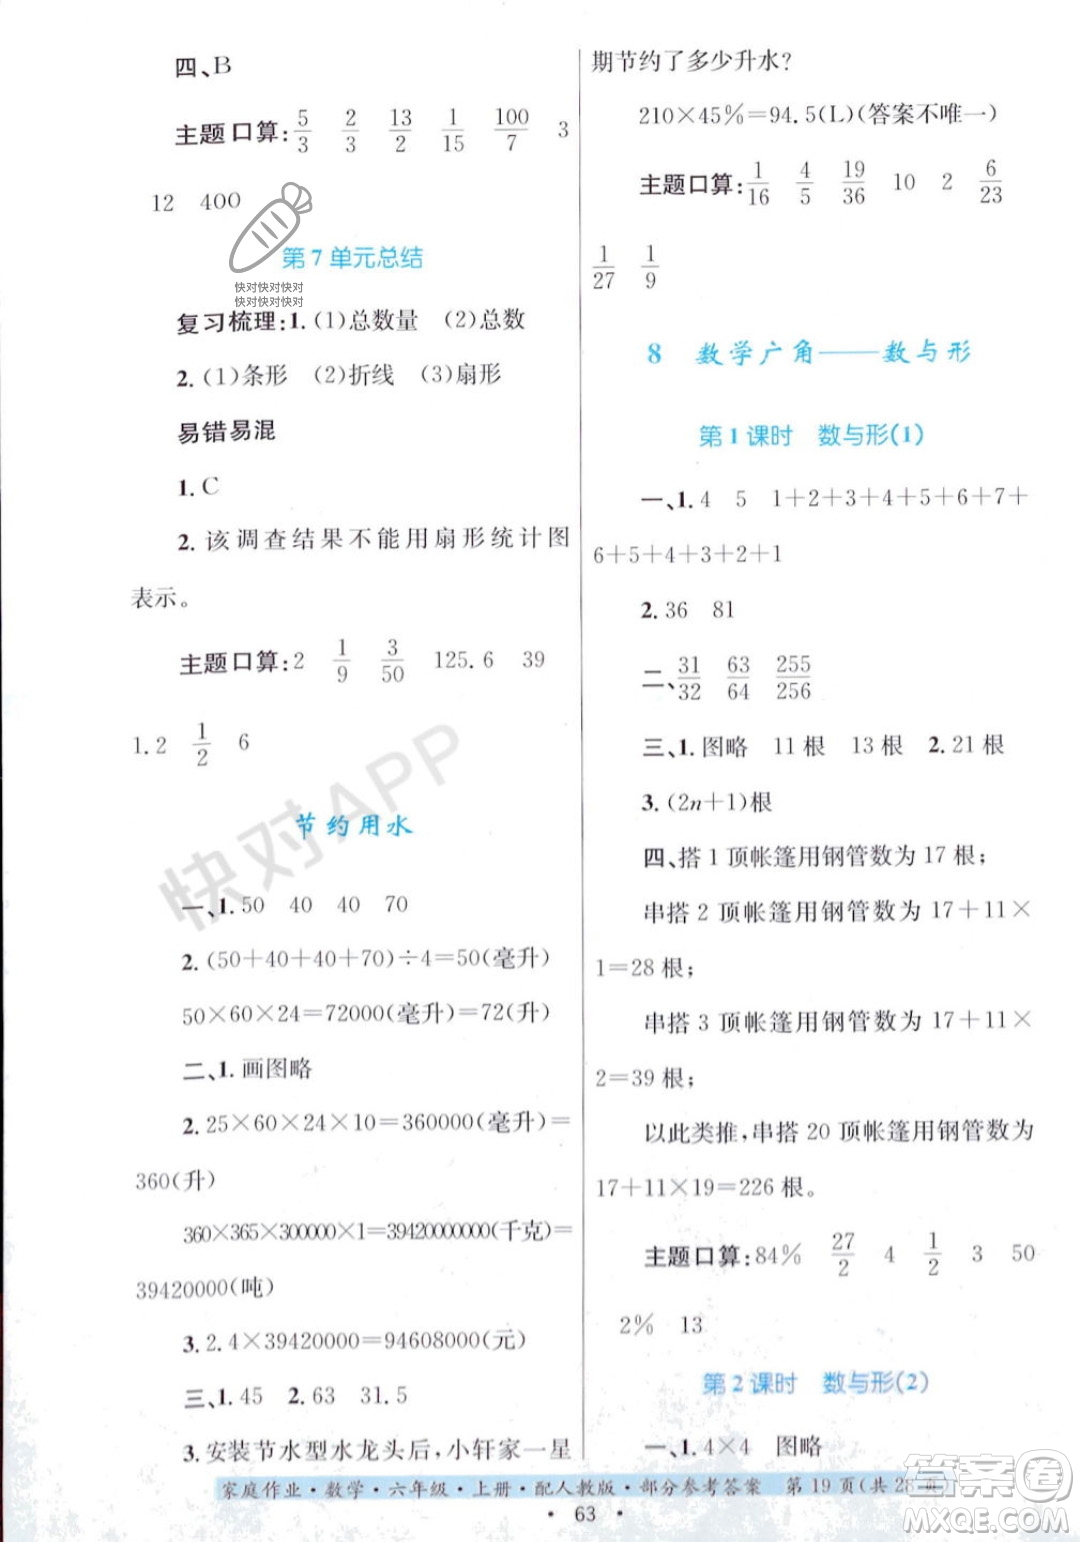 四、B
主题口算:5/3 2/3 13/2 1/15 100/7 3
12 400
第7单元总结
快对快对快对
快对快对快对
复习梳理:1.(1)总数量 (2)总数
2.(1)条形 (2)折线 (3)扇形
易错易混
1.C
2.该调查结果不能用扇形统计图
表示。
主题口算:2 1/9 3/50 125.6 39
1.2 1/2 6
节约用水
一、1.50 40 40 70
2.(50+40+40+70)÷4=50(毫升)
50×60×24=72000(毫升)=72(升)
二、1.画图略
2.25×60×24×10=360000(毫升)=
360(升)
360×365×300000×1=39420000000(千克)=
39420000(吨)
3.2.4×39420000=94608000(元)
三、1.45 2.63 31.5
3.安装节水型水龙头后,小轩家一星
期节约了多少升水?
210×45%=94.5(L)(答案不唯一)
主题口算:1/16 4/5 19/36 10 2 6/23
1/27 1/9
8 数学广角——数与形
第1课时 数与形(1)
一、1.4 5 1+2+3+4+5+6+7+
6+5+4+3+2+1
2.36 81
二、31/32 63/64 255/256
三、1.图略 11根 13根 2.21根
3.(2n+1)根
四、搭1顶帐篷用钢管数为17根;
串搭2顶帐篷用钢管数为17+11×
1=28根;
串搭3顶帐篷用钢管数为17+11×
2=39根;
以此类推,串搭20顶帐篷用钢管数为
17+11×19=226根。
主题口算:84% 27/2 4 1/2 3 50
2% 13
第2课时 数与形(2)
一、1.4×4 图略
家庭作业·数学·六年级·上册·配人教版·部分参考答案 第19页(共28页)
·63·
快对APP
答案圈
MXQE.COM